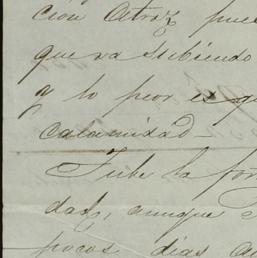 cion Atroz pues
que va subiendo
y lo peor es q
calamidad -
Tube la for
dad, aunque
pocos dias